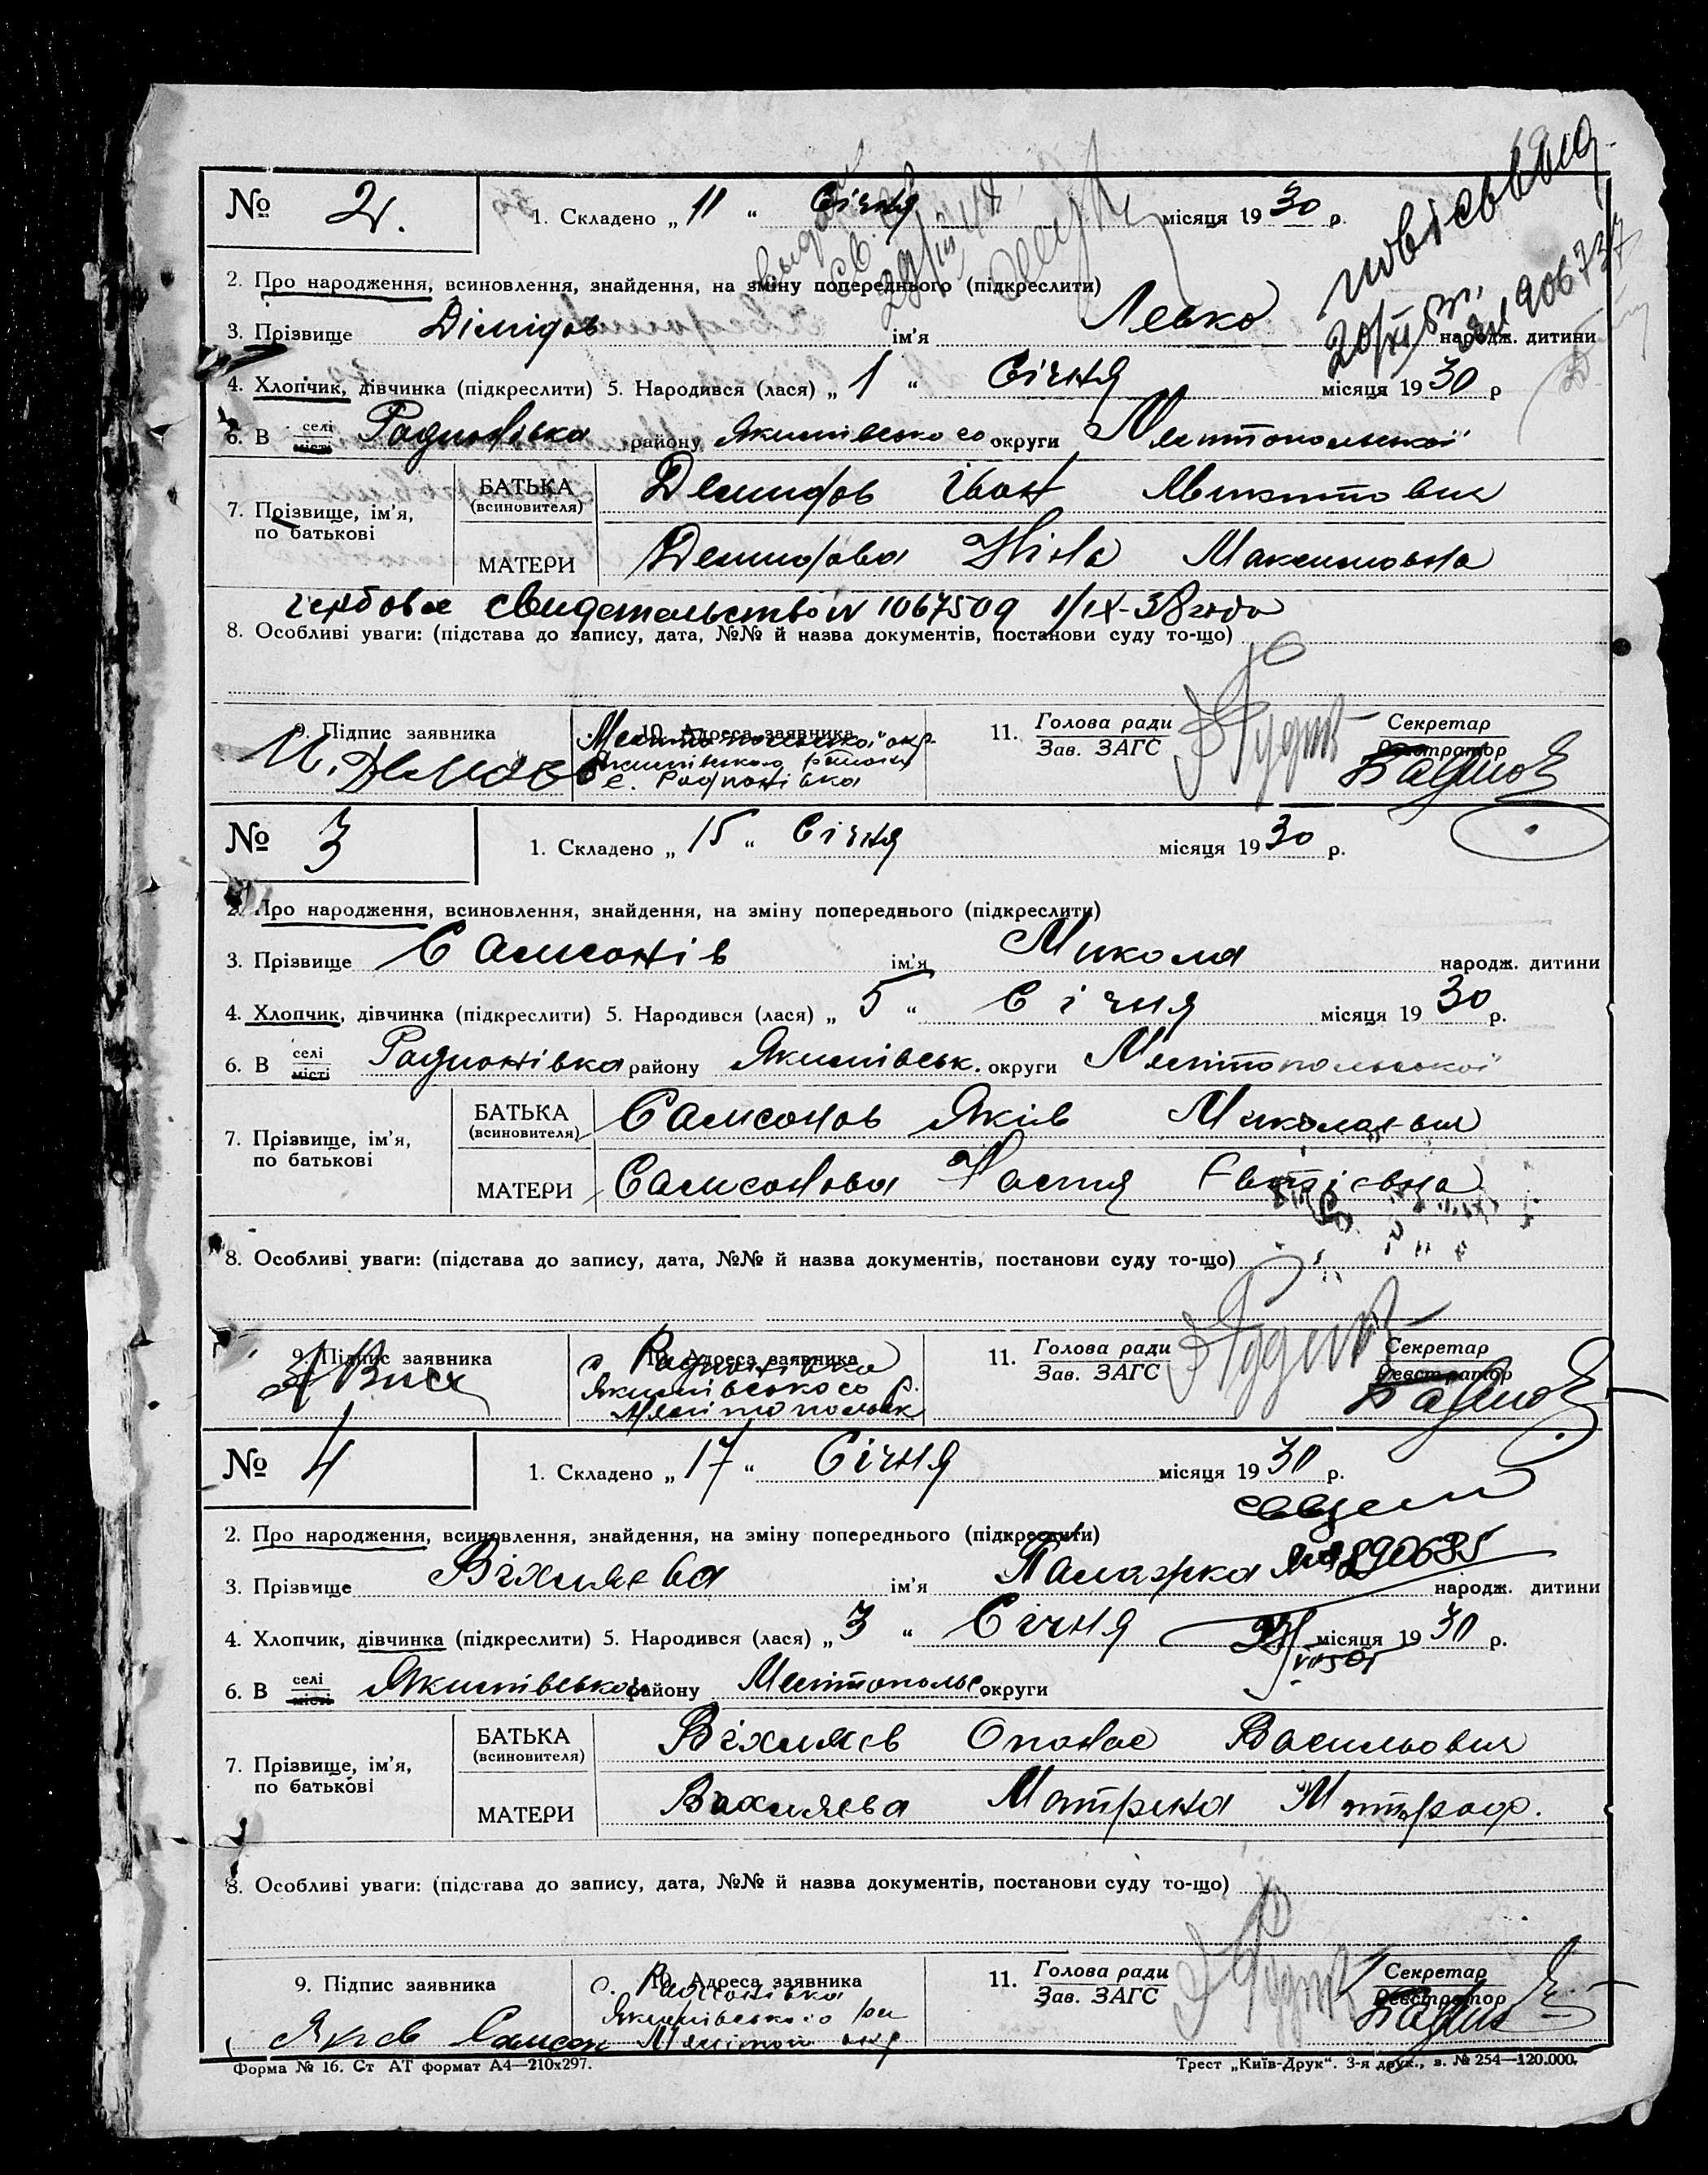 № 2. 1. Складено „ 11 “ Січня місяця 19 30 р.
2. Про народження, всиновлення, знайдення, на зміну попереднього (підкреслити)
3. Прізвище Дімідов ім'я Левко народж. дитини
4. Хлопчик, дівчинка (підкреслити) 5. Народився (лася) „ 1 “ Січня місяця 19 30 р
6. В селі місті Радионівка району Якимівського округи Мелітопольської
7. Прізвище, ім'я, по батькові
БАТЬКА (всиновителя) Демидов Іван Микитович
МАТЕРИ Демидова Ніна Максимовна
гербовое свидетельство N 1067509 1/IX-38 года
8. Особливі уваги: (підстава до запису, дата, №№ й назва документів, постанови суду то-що)
9. Підпис заявника 10. Адреса заявника 11. Голова ради Зав. ЗАГС Секретар Реєстратор
Мелитопольської окр.
Якимівського району
с. Радионівка
№ 3 1. Складено „ 15 “ Січня місяця 19 30 р.
2. Про народження, всиновлення, знайдення, на зміну попереднього (підкреслити)
3. Прізвище Самсонів ім'я Микола народж. дитини
4. Хлопчик, дівчинка (підкреслити) 5. Народився (лася) „ 5 “ Січня місяця 19 30 р.
6. В селі місті Радионівка району Якимівськ. округи Мелітопольської
7. Прізвище, ім'я, по батькові
БАТЬКА (всиновителя) Самсонов Яків Миколаєвич
МАТЕРИ Самсонова Настя
8. Особливі уваги: (підстава до запису, дата, №№ й назва документів, постанови суду то-що)
9. Підпис заявника 10. Адреса заявника 11. Голова ради Зав. ЗАГС Секретар Реєстратор
с. Радионівка
Якимівського р.
Мелітопольськ
№ 4 1. Складено „ 17 “ Січня місяця 19 30 р.
2. Про народження, всиновлення, знайдення, на зміну попереднього (підкреслити)
3. Прізвище Віхляєва ім'я Тамарка № 890635 народж. дитини
4. Хлопчик, дівчинка (підкреслити) 5. Народився (лася) „ 3 “ Січня місяця 19 30 р.
6. В селі місті Якимівського району Мелітопольс. округи
7. Прізвище, ім'я, по батькові
БАТЬКА (всиновителя) Віхляєв Опанас Васильович
МАТЕРИ Вихляєва Мотрина Митроф.
8. Особливі уваги: (підстава до запису, дата, №№ й назва документів, постанови суду то-що)
9. Підпис заявника 10. Адреса заявника 11. Голова ради Зав. ЗАГС Секретар Реєстратор
с. Радионівка
Якимівського ра
Яков Самсон Мелітоп окр
Форма № 16. Ст АТ формат А4—210х297. Трест „Київ-Друк“. 3-я друк., з. № 254—120.000.